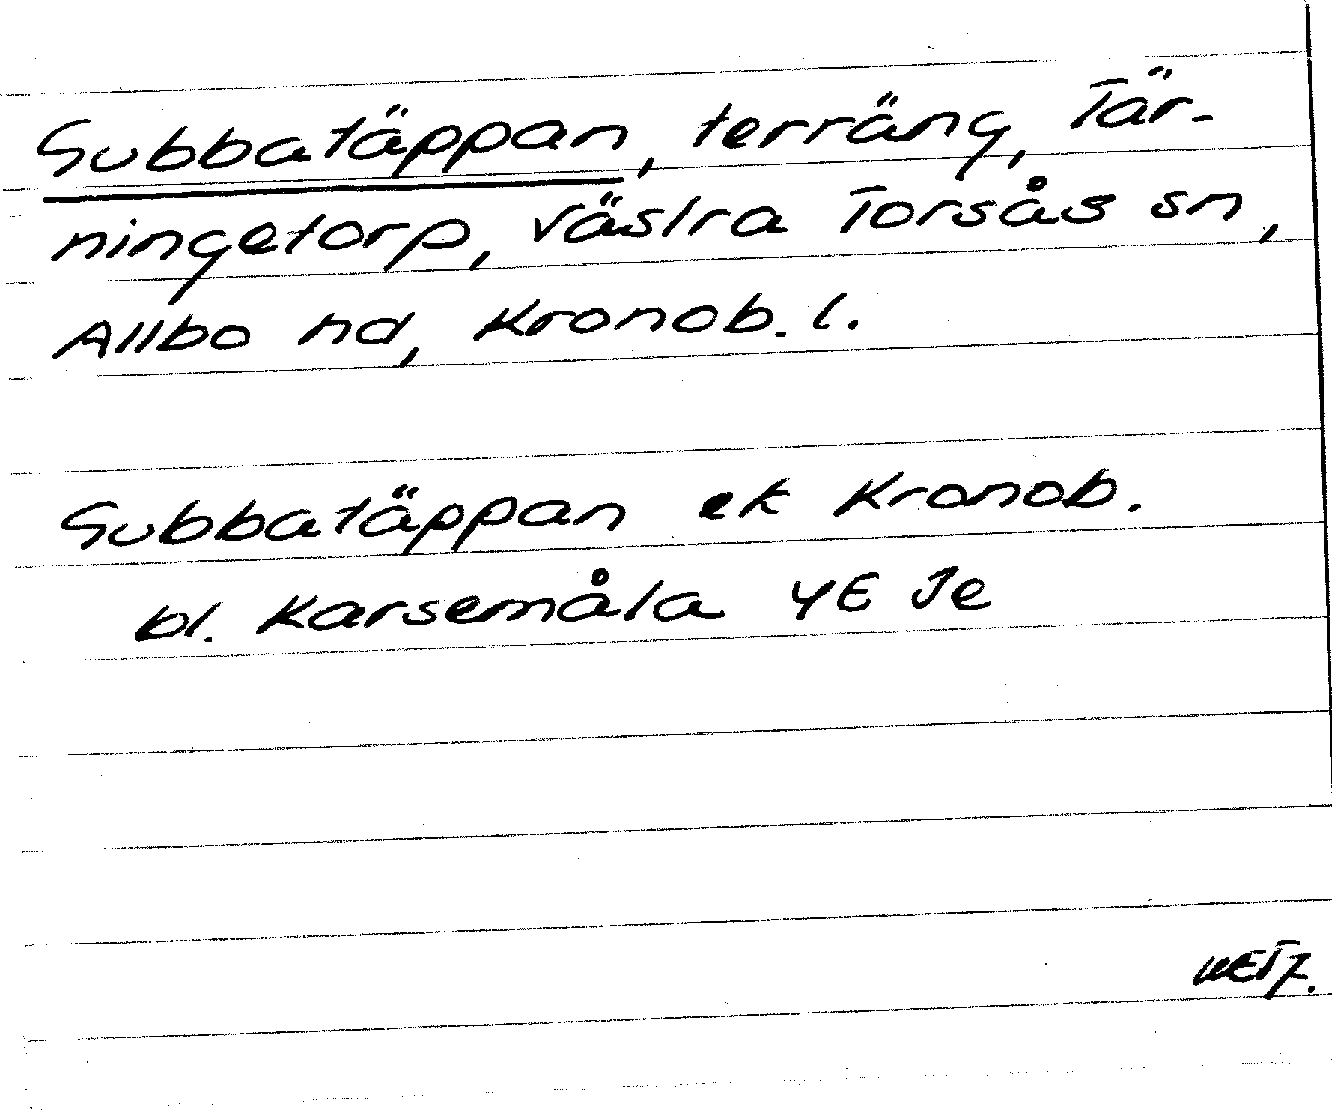 Subbatäppan, terräng, Tär-
ningetorp, Västra Torsås sn,
Allbo hd, Kronob. l.
Subbatäppan ek Kronob.
bl. Karsemåla 4E Je